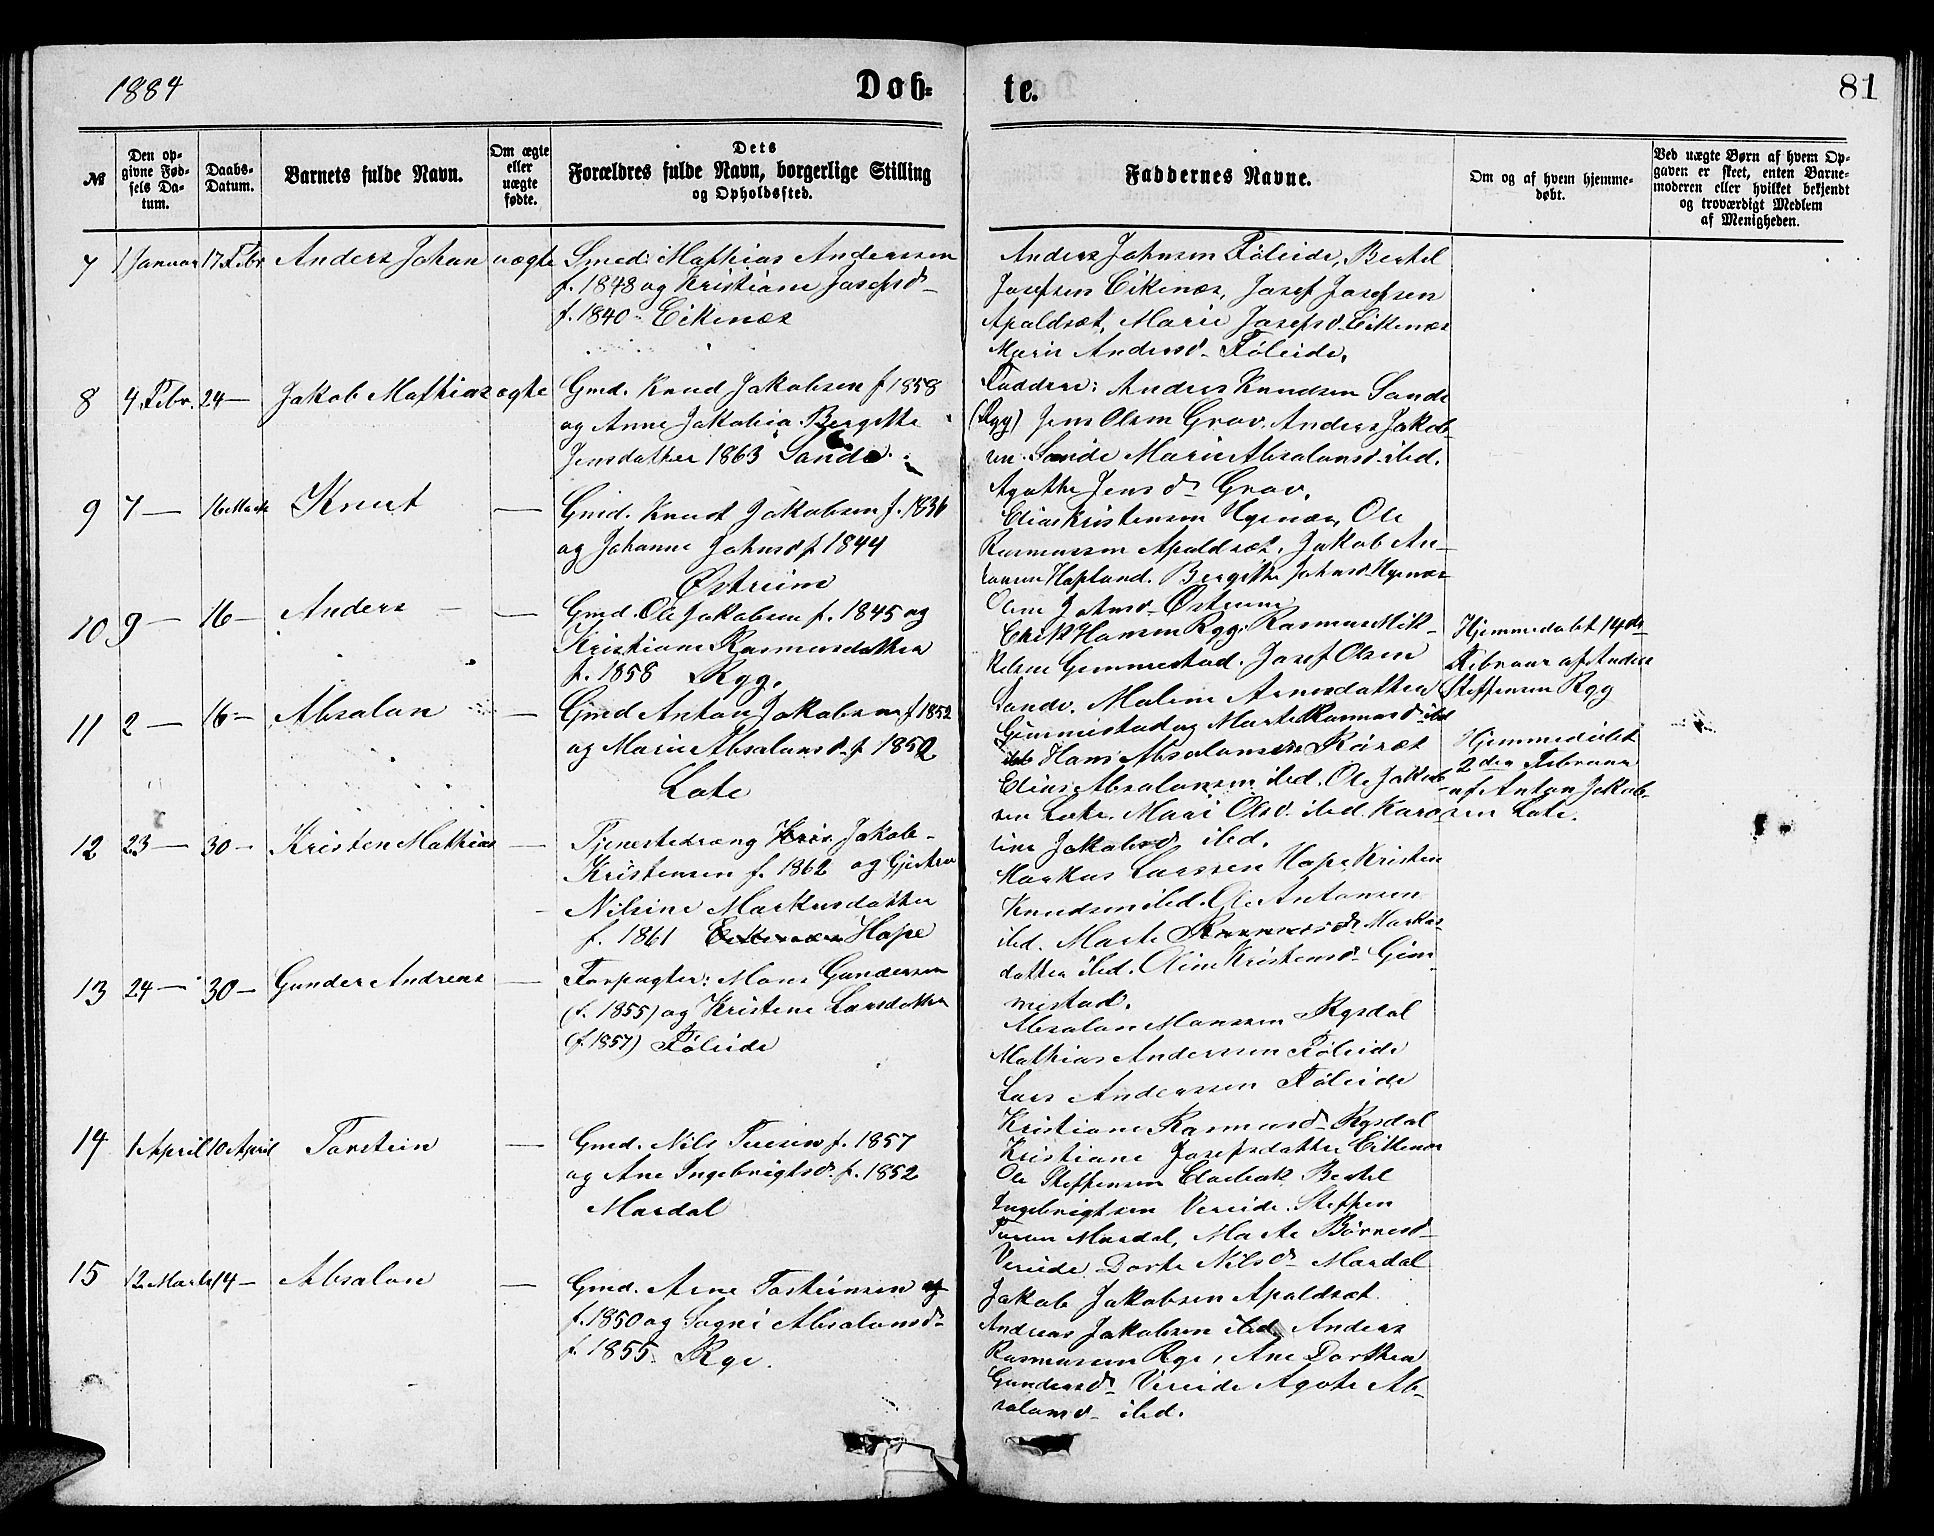 1884
Døb-
te.
81
№
Den op-
givne Fød-
sels Da-
tum.
Daabs-
Datum.
Barnets fulde Navn.
Om ægte
eller
uægte
fødte.
Dets
Forældres fulde Navn, borgerlige Stilling
og Opholdsted.
Faddernes Navne.
Om og af hvem hjemme-
døbt.
Ved uægte Børn af hvem Op-
gaven er skeet, enten Barne-
moderen eller hvilket bekjendt
og troværdigt Medlem
af Menigheden.
7 1 Januar 17 Febr Anders Johan uægte
Smed: Mathias Anderssen
f. 1848 og Kristiane Josefsd-
f. 1840 - Eikenæs
Anders Johnsen Føleide, Bertel
Josefsen Eikenæs, Josef Josefsen
Apaldsæt, Marie Josefsd. Eikenæs
Marie Andersd- Føleide.
8 4 Febr. 24 — Jakob Mathias ægte
Gmd. Knud Jakobsen f 1858
og Anne Jakobia Bergithe
Jensdatter 1863 Sande.
Faddere: Anders Knudsen Sande
(Ryg) Jens Olsen Grov. Anders Jakob-
sen Sande Marie Absalonsd. ibd.
Agathe Jensd- Grov.
9 7 — 16 Marts Knut —
Gmd. Knud Jakobsen f. 1836
og Johanne Johnsd f 1844
Østreim
Elias Kristensen Hyenæs, Ole
Rasmussen Apaldsæt, Jakob An-
tonsen Hopland. Bergithe Johnsd. Hyenæs
Oline Johnsd- Østreim
10 9 — 16 — Anders —
Gmd. Ole Jakobsen f. 1845 og
Kristiane Rasmusdatter
f. 1858 Ryg.
Erik Hansen Ryg. Rasmus Mik-
kelsen Gemmestad. Josef Olsen
Sande. Malene Arnesdatter
Gimmestad og Marte Rasmusd ibd
Hjemmedøbt 14de
Februar af Anders
Steffensen Ryg
11 2 — 16 — Absalon —
Gmd Anton Jakobsen f 1852
og Marie Absalonsd. f 1850
Lote
Hans Absalonsen Råsæt
Elias Absalonsen ibd. Ole Jakob-
sen Lote. Mari Olsd. ibd. Karo-
line Jakobsd ibd.
Hjemmedøbt
2den Februar
af Anton Jakob-
sen Lote.
12 23 — 30 — Kristen Mathias —
Tjenestedræng Kris Jakob-
Kristensen f. 1862 og Gjertru
Nilsine Markusdatter
f. 1861 Eikenæs Hope
Markus Larssen Hope Kristen
Knudsen ibd. Ole Antonsen
ibd. Marte Rasmusd Markus-
datter ibd. Oline Kristensd- Gim-
mestad.
13 24 — 30 — Gunder Andreas —
Forpagter: Mons Gundersen
(f. 1855) og Kristene Larsdatter
(f. 1857) Føleide
Absalon Monssen Rysdal
Mathias Anderssen Føleide
Lars Anderssen Føleide
Kristiane Rasmusd- Rysdal
Kristiane Josefsdatter Eikenæs
14 1 April 10 April Torstein —
Gmd. Nils Turesen f. 1857
og Ane Ingebrigtsd. f. 1852
Mardal
Ole Steffensen Eladbak Bertel
Ingebrigtsen Vereide. Steffen
Turesen Mardal, Marte Børresd-
Vereide Dorte Nilsd- Mardal
15 12 Marts 14 — Absalon —
Gmd. Arne Torsteinsen og
f. 1850 og Sogni Absalonsd-
f. 1855. Ryg.
Jakob Jakobsen Apaldsæt.
Andreas Jakobsen ibid, Anders
Rasmussen Ryg, Ane Dorthea
Gundersd- Vereide Agote Ab-
salonsd- ibd.